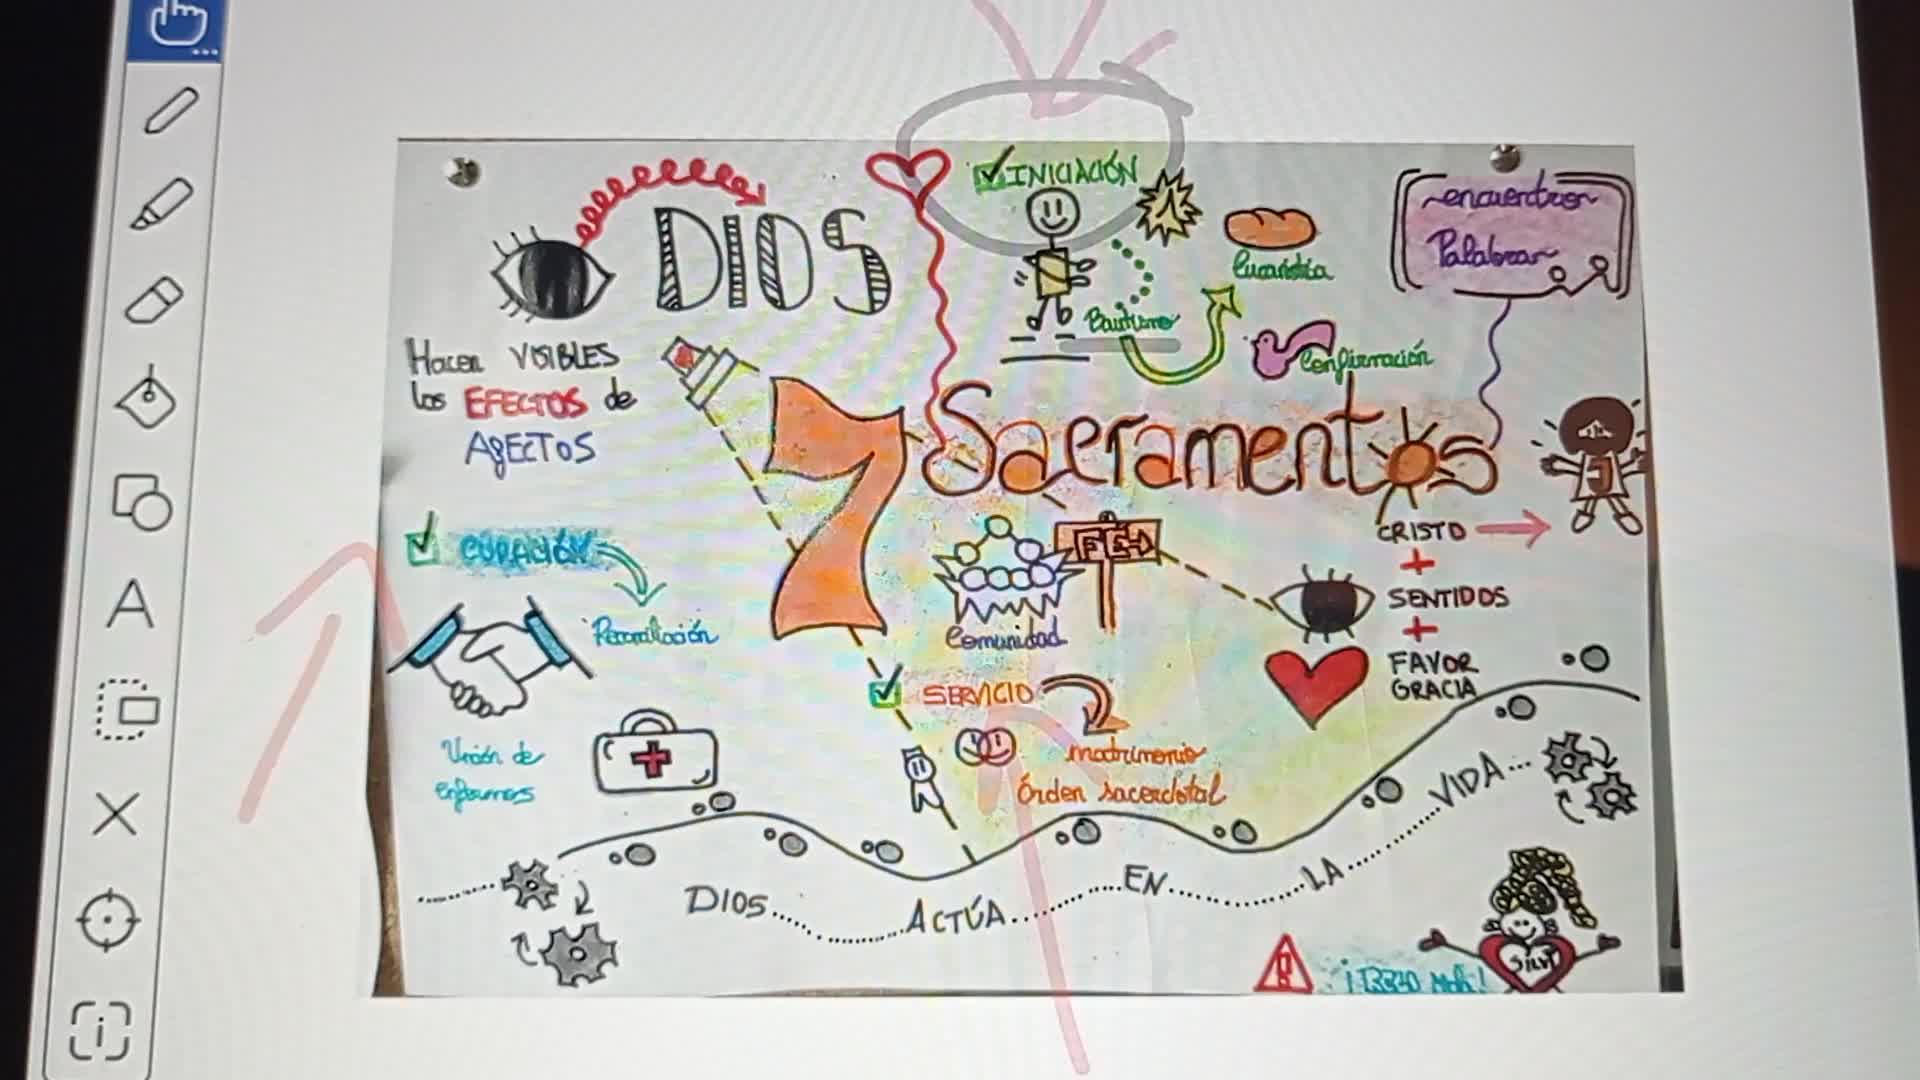 DIOS
Hacen VISIBLES
los EFECTOS de
AfECTOS
INICIACIÓN
Eucaristía
Bautismo
Confirmación
encuentran
Palabras
7 Sacramentos
CRISTO
+
SENTIDOS
+
FAVOR
GRACIA
CURACIÓN
Reconciliación
Unción de
enfermos
FE
Comunidad
SERVICIO
matrimonio
Órden sacerdotal
DIOS... ACTÚA... EN... LA... VIDA...
SILVI
A